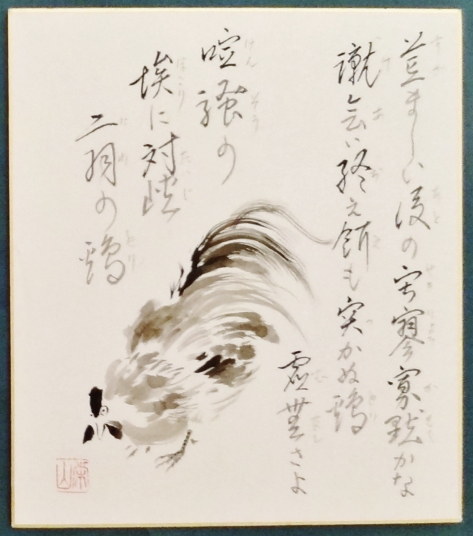 荒ましい後の寂寥寡黙かな
蹴合い終え餌も突かぬ鶏
虚無さよ
喧騒の
埃に対峙
二羽の鶏